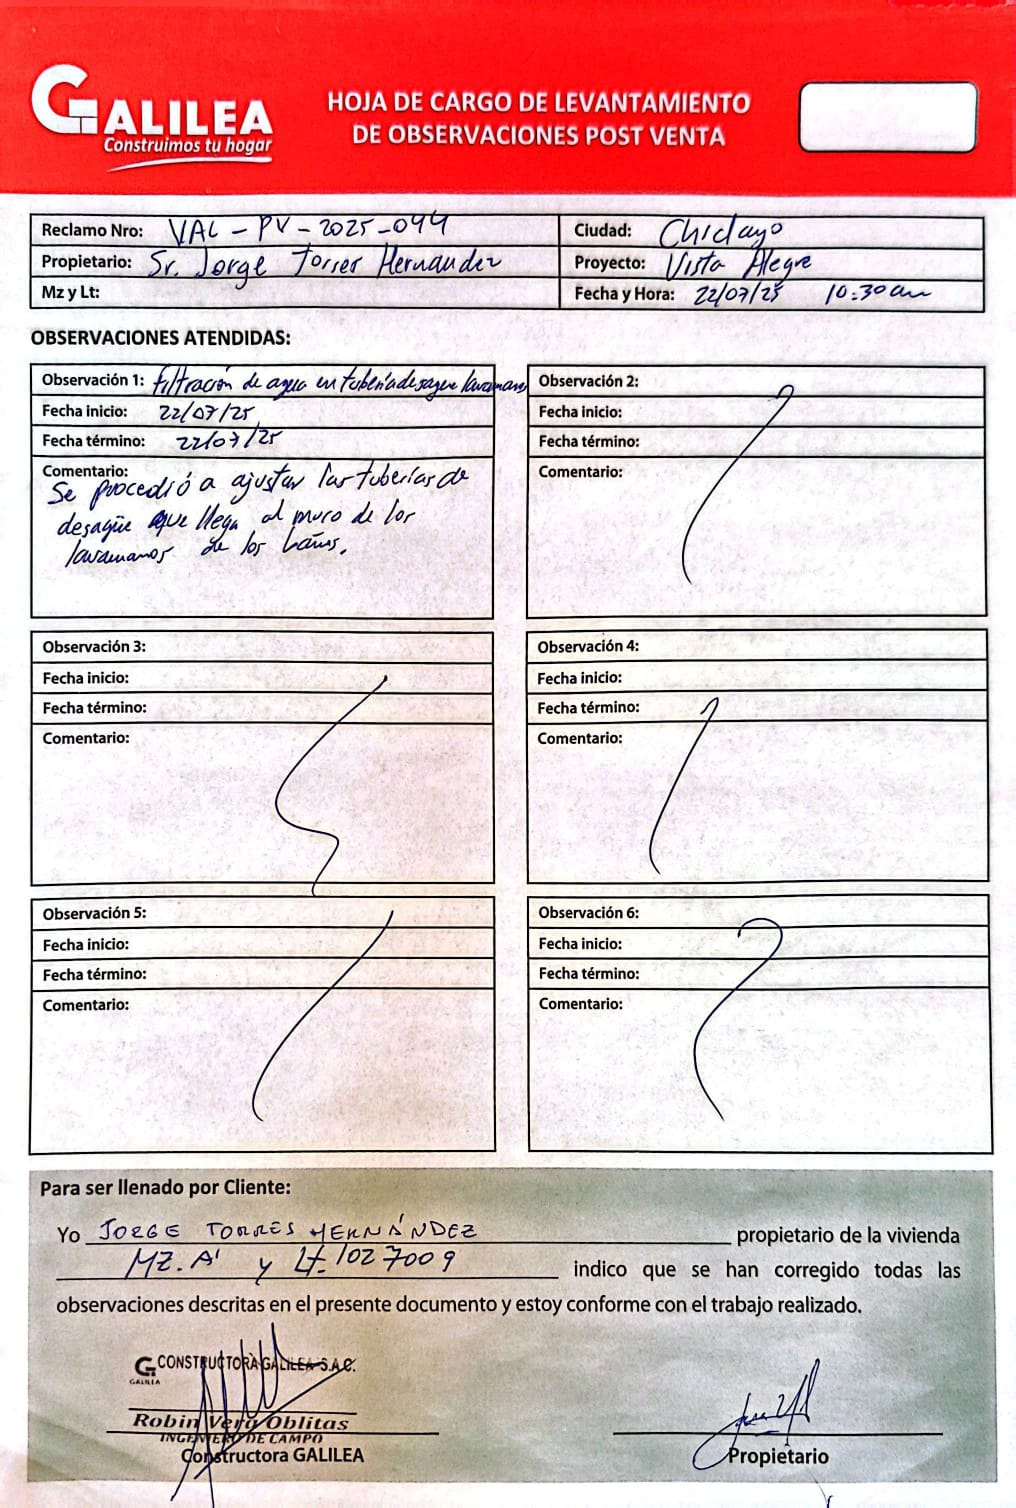 GALILEA
Construimos tu hogar
HOJA DE CARGO DE LEVANTAMIENTO
DE OBSERVACIONES POST VENTA
Reclamo Nro: VAL - PV - 2025 - 044
Ciudad: Chiclayo
Propietario: Sr. Jorge Torres Hernandez
Proyecto: Vista Alegre
Mz y Lt:
Fecha y Hora: 22/07/25 10:30 am
OBSERVACIONES ATENDIDAS:
Observación 1: filtración de agua en tubería desague lavamanos
Fecha inicio: 22/07/25
Fecha término: 22/07/25
Comentario:
Se procedió a ajustar las tuberías de
desagüe que llega al muro de los
lavamanos de los baños.
Observación 2:
Fecha inicio:
Fecha término:
Comentario:
Observación 3:
Fecha inicio:
Fecha término:
Comentario:
Observación 4:
Fecha inicio:
Fecha término:
Comentario:
Observación 5:
Fecha inicio:
Fecha término:
Comentario:
Observación 6:
Fecha inicio:
Fecha término:
Comentario:
Para ser llenado por Cliente:
Yo JORGE TORRES HERNÁNDEZ propietario de la vivienda
MZ. A' y Lt. 102 7009 indico que se han corregido todas las
observaciones descritas en el presente documento y estoy conforme con el trabajo realizado.
CONSTRUCTORA GALILEA S.A.C.
GALILEA
Robin Vera Oblitas
INGENIERO DE CAMPO
Constructora GALILEA
Propietario